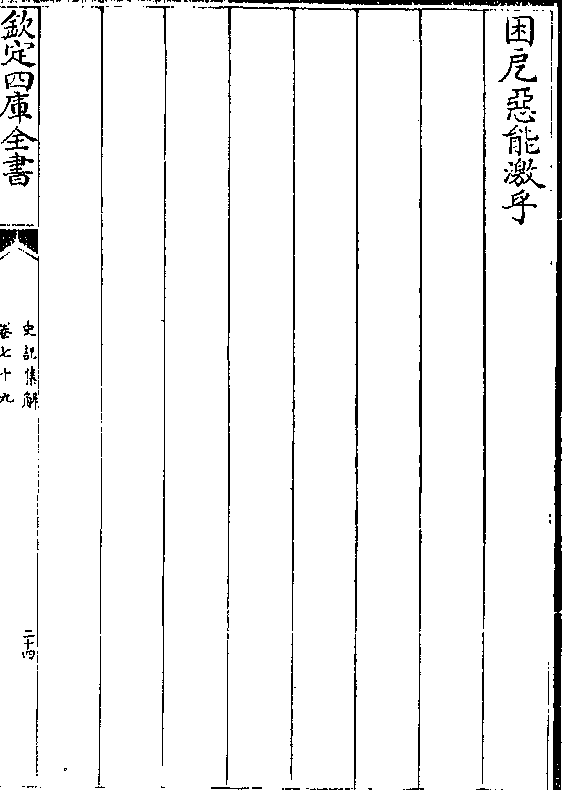 困戹惡能激乎
欽定四庫全書
史記集解
卷七十九
二十四